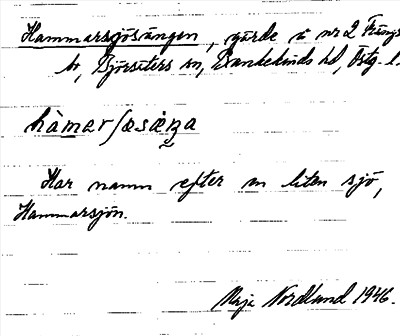 Hammarsjösängen, gärde å nr 2
by, Björsäters sn, Bankekinds hd, Östg. l.
hàmarʃøsæ̀ŋa
Har namn efter en liten sjö,
Hammarsjön.
Maja Nordlund 1946.